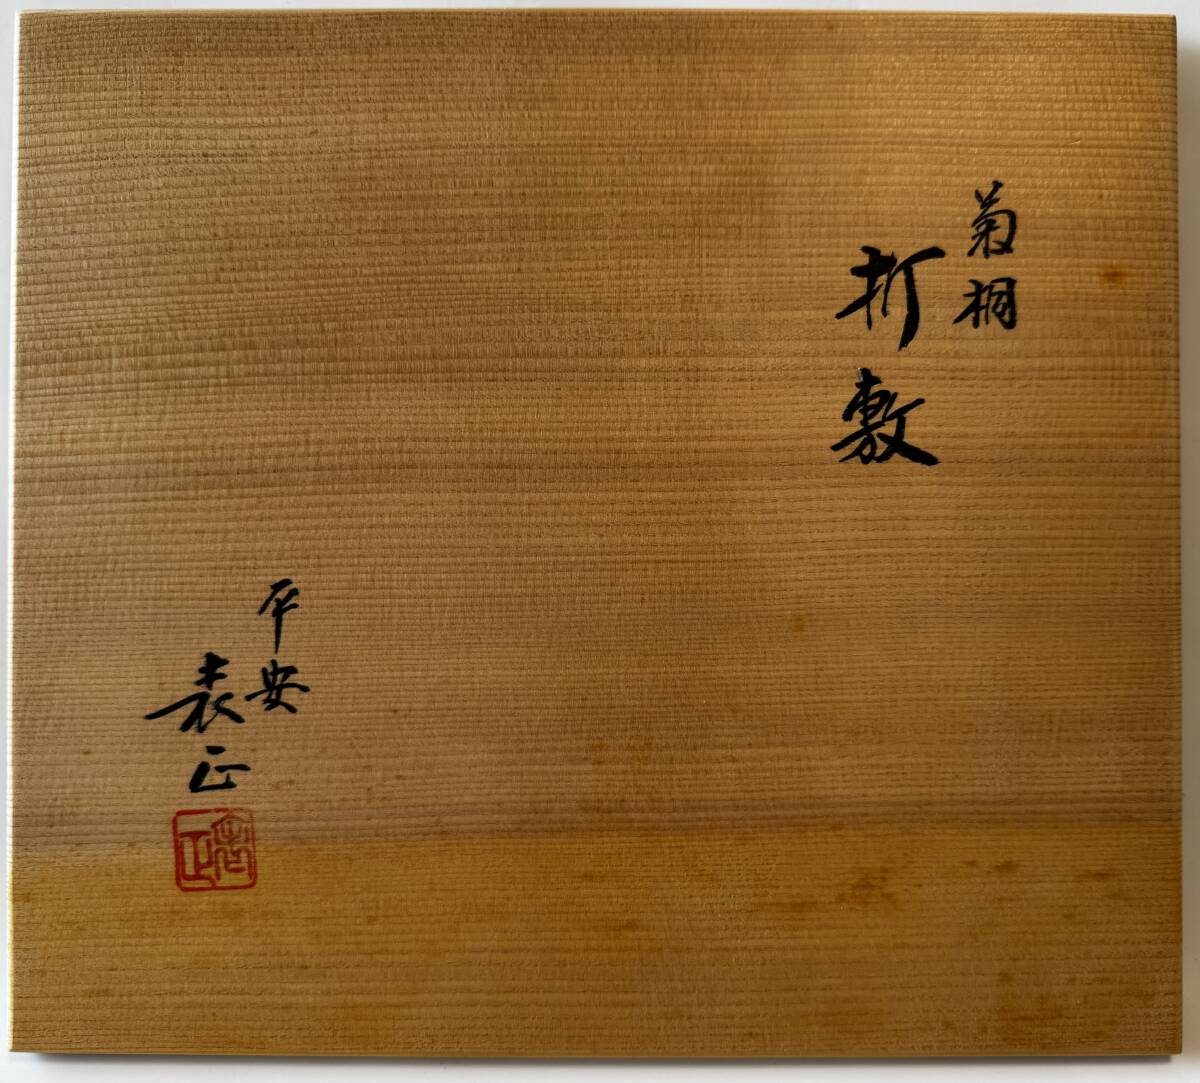 菊桐
折敷
平安
表正